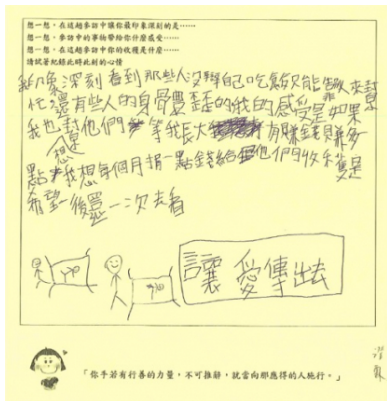 想一想,在這趟參訪中讓你最印象深刻的是……
想一想,參訪中的事物帶給你什麼感受……
想一想,在這趟參訪中你的收穫是什麼……
請試著紀錄此時此刻的心情
我印象深刻看到那些人沒辦自己吃飯只能靠人來幫
忙還有些人的身骨豊歪的我的感受是如果
我也想幫他們等我長大有賺錢賺多
點我想每個月捐一點錢給他們收穫是
希望以後還一次去看
讓愛傳出去
「你手若有行善的力量,不可推辭,就當向那應得的人施行。」